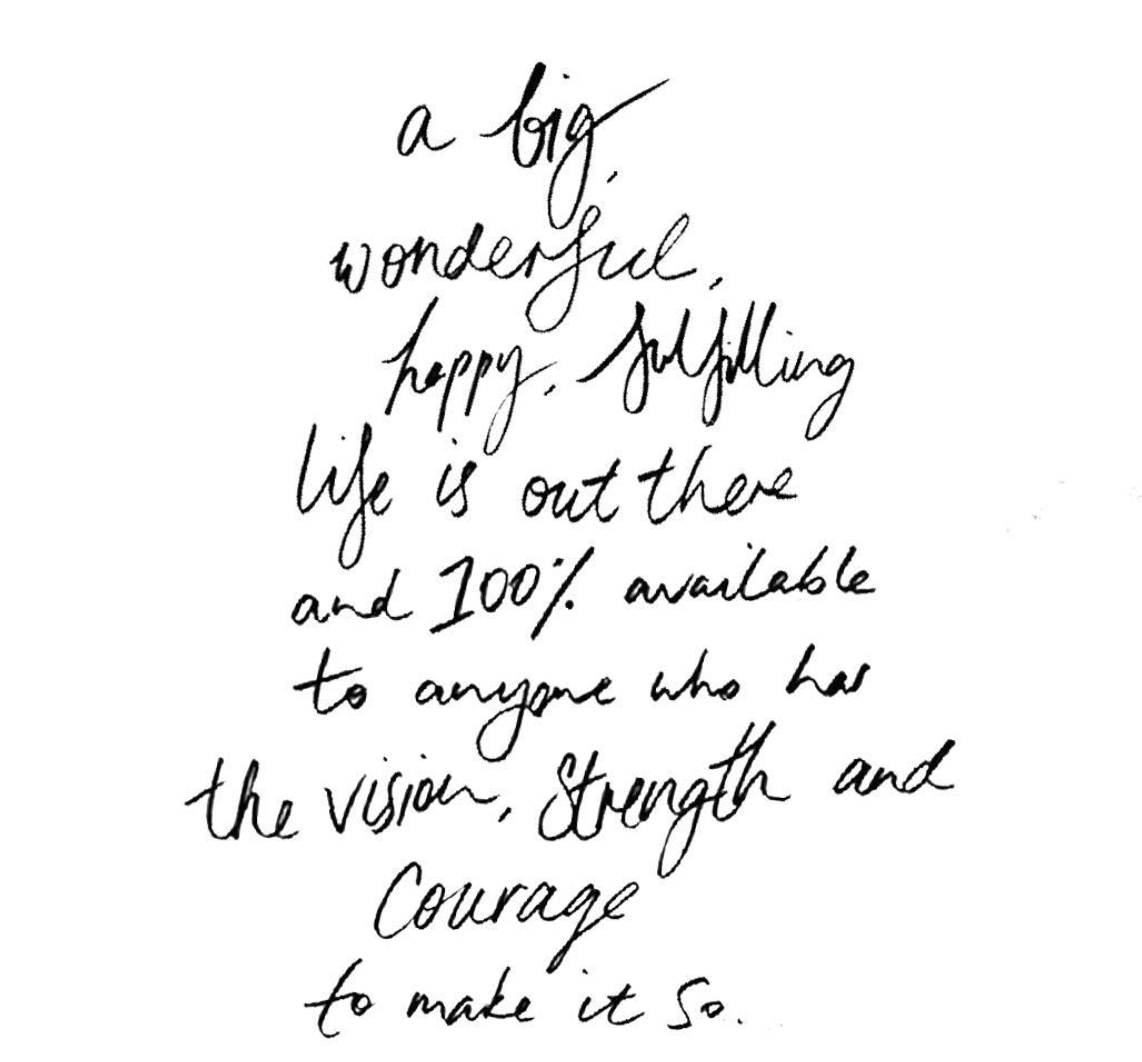 a big,
wonderful,
happy, fulfilling
life is out there
and 100% available
to anyone who has
the vision, Strength and
Courage
to make it so.